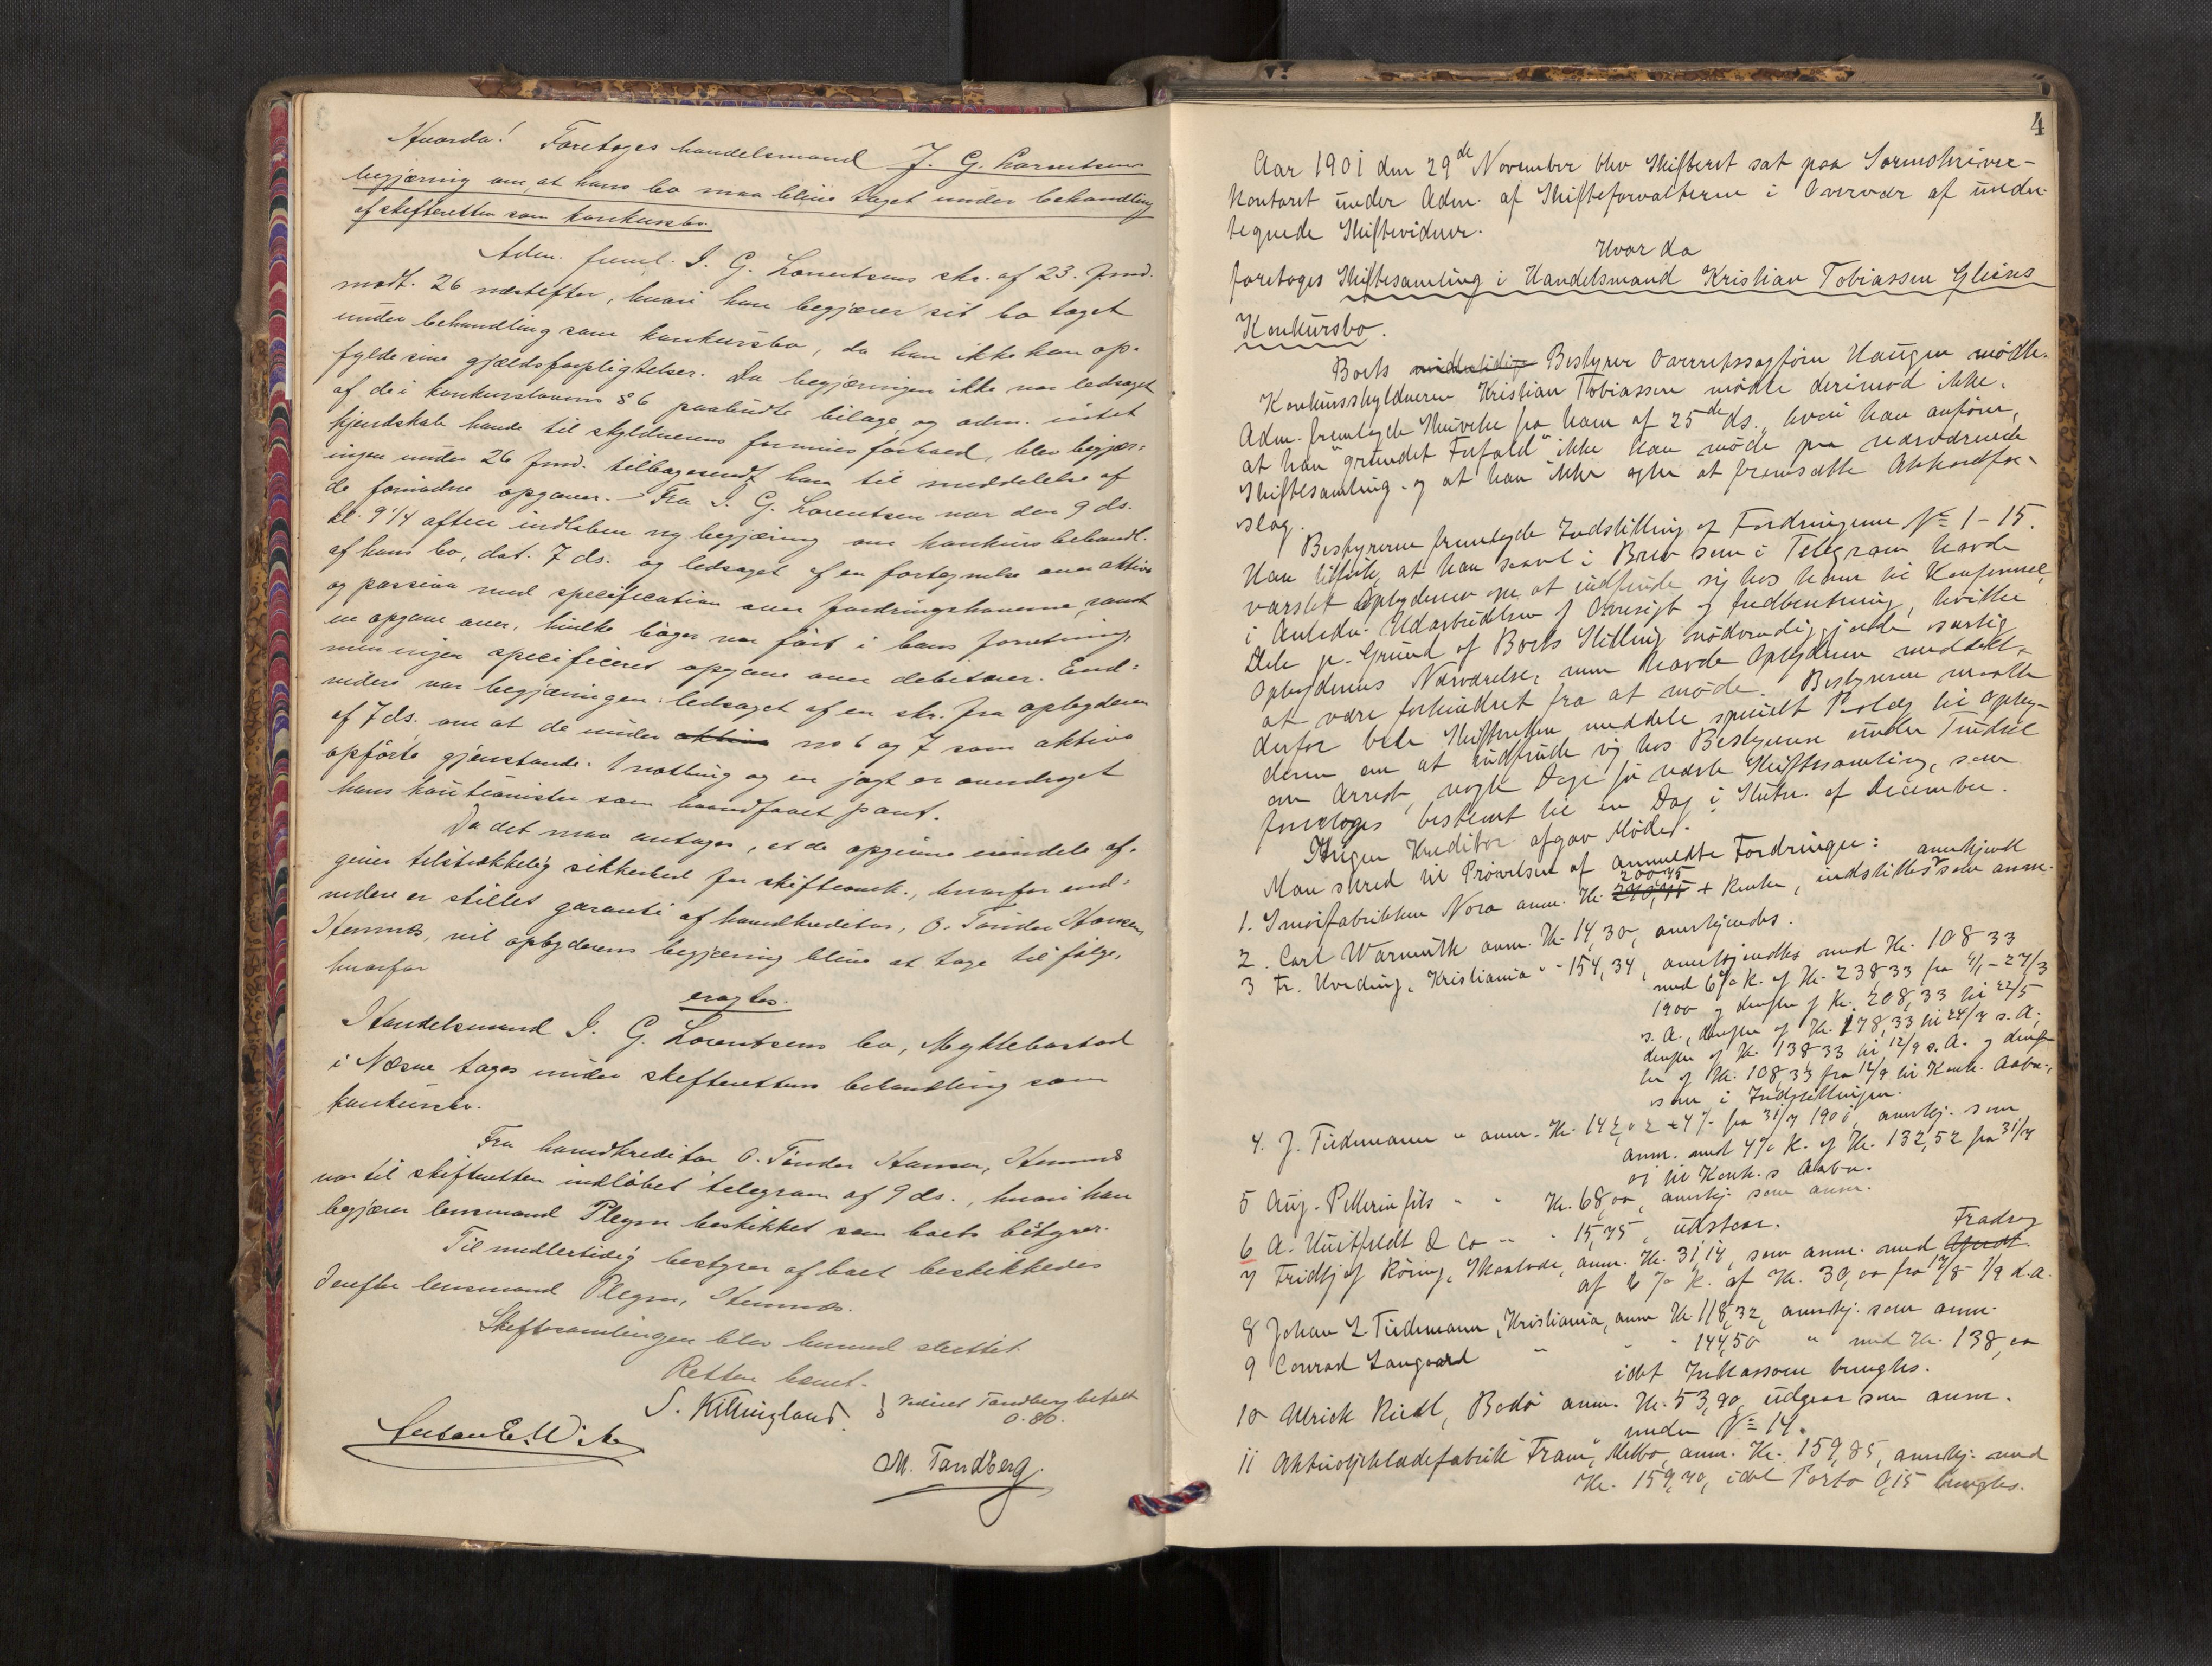 Hvorda! Foretoges handelsmand J. G. Lorentsens
begjæring om, at hans bo maa blive taget under behandling
af skifteretten som konkursbo.
Adm. freml. I. G. Lorentsens skr. af 23. fmd.
modt. 26 næstefter, hvori han begjærer sit bo taget
under behandling som konkursbo, da han ikke kan op-
fylde sine gjældsforpligtelser. Da begjæringen ikke var ledsaget
af de i konkurslovens § 6 paabudte bilage og adm. intet
kjendskab havde til skyldnerens formuesforhold, blev begjær-
ingen under 26 fmd. tilbagesendt ham til meddelelse af
de fornødne opgaver. – Fra I. G. Lorentsen var den 9 ds.
kl. 9 1/4 aften indløben ny begjæring om konkursbehandl.
af hans bo, dat. 7 ds. og ledsaget af en fortegnelse over aktiva
og passiva med specification over fordringshaverne, samt
en opgave over, hvilke bøger var ført i hans forretning,
men ingen specificeret opgave over debitorer. End-
videre var begjæringen ledsaget af en skr. fra opbyderen
af 7 ds. om at de under aktiva no 6 og 7 som aktiva
opførte gjenstande. 1 notbrug og en jagt er overdraget
hans kautionister som haandfaaet pant.
Da det maa antages, at de opgivne eiendele af-
giver tilstrækkelig sikkerhed for skifteomk., hvorfor end-
videre er stillet garanti af hovedkreditor, O. Tønder Hansen,
Hemnæs, vil opbyderens begjæring blive at tage til følge,
hvorfor
eragtes.
Handelsmand I. G. Lorentsens bo, Myklebostad
i Næsne tages under skifterettens behandling som
konkursbo.
Fra hovedkreditor O. Tønder Hansen, Hemnæs
var til skifteretten indløbet telegram af 9 ds., hvori han
begjærer lensmand Plegm beskikket som boets bestyrer.
Til midlertidig bestyrer af boet beskikkedes
derefter lensmand Plegm, Hemnæs.
Skiftesamlingen blev hermed sluttet.
Retten hævet.
S. Killingland. } Vidnet Tandberg betalt
0.80.
M. Tandberg.
4
Aar 1901 den 29de November blev Skifteret sat paa Sorenskriver-
kontoret under Adm. af Skifteforvalteren i Overvær af under-
tegnede Skiftevidner.
Hvor da
foretoges Skiftesamling i Handelsmand Kristian Tobiassen Gleines
Konkursbo.
Boets midlertidige Bestyrer Overretssagfører Haugen mødte.
Konkursskyldneren Kristian Tobiassen mødte derimod ikke.
Adm. fremlagde Skrivelse fra ham af 25de ds., hvori han anfører,
at han "grundet Forfald" ikke kan møde paa nærværende
Skiftesamling og at han ikke agter at fremsætte Akkordfor-
slag.
Bestyreren fremlagde Indstilling af Fordringerne No 1-15.
Han tilføiede, at han saavel i Brev som i Telegram havde
varslet Opbyderen om at indfinde sig hos ham til Konference
i Anledn. Udarbeidelsen af Oversigt og Indberetning, hvilke
Dele p. Grund af Boets Stilling nødvendiggjorde særlig
Opbyderens Nærværelse, men havde Opbyderen meddelt,
at være forhindret fra at møde. Bestyreren maatte
derfor bede Skifteretten meddele specielt Paalæg til Opby-
deren om at indfinde sig hos Bestyreren under Trudsel
om Arrest, nogle Dage før næste Skiftesamling, som
foreløbig bestemt til en Dag i Slutn. af December.
Ingen Kreditor afgav Møde.
Man skred til Prøvelsen af anmeldte Fordringer:
1. Smørfabrikken Nora anm. Kr. 200,75 + Renter, indstilles anerkjendt som anm.
2. Carl Warmuth anm. Kr. 14,30, anerkjendes.
3 Fr. Hvieding, Kristiania " - 154,34, anerkjendtes med Kr. 108 33
med 6% R. af Kr. 238,33 fra 4/1 - 27/3
1900 og derefter af Kr. 208,33 til 22/5
s. A., derefter af Kr. 178,33 til 24/7 s. A.,
derefter af Kr. 138 33 til 12/9 s. A. og deref-
ter af Kr. 108,33 fra 12/9 til Konk. Aabn.,
som i Indstillingen.
4. J. Tiedemann " anm. Kr. 142,02 + 4% fra 31/7 1901, anerkj. som
anm. med 4% R. af Kr. 132,52 fra 31/7
01 til Konk.s Aabn.
5 Aug. Pellerin fils " " Kr. 68,00, anerkj. som anm.
6 A. Huitfeldt & Co " - - 15,75, udstaar.
7 Fridtjof Röring, Skaalvær, anm. Kr. 31,14, som anm. med Fradrag
af 6% R. af Kr. 30,00 fra 17/8 - 1/9 d. A.
8 Johan L. Tiedemann, Kristiania, anm Kr 118,32, anerkj. som anm.
9 Conrad Langaard " - - 144,50 " med Kr. 138,00
idet Inkassoen benegtes.
10 Ulrick Riedl, Bodø anm. Kr. 53,90, udgaar som anm.
under No 14.
11 Aktieoljeklædefabrik "Fram", Melbo, anm. Kr. 159,85, anerkj. med
Kr. 159,70, idet Porto 0,15 benegtes.